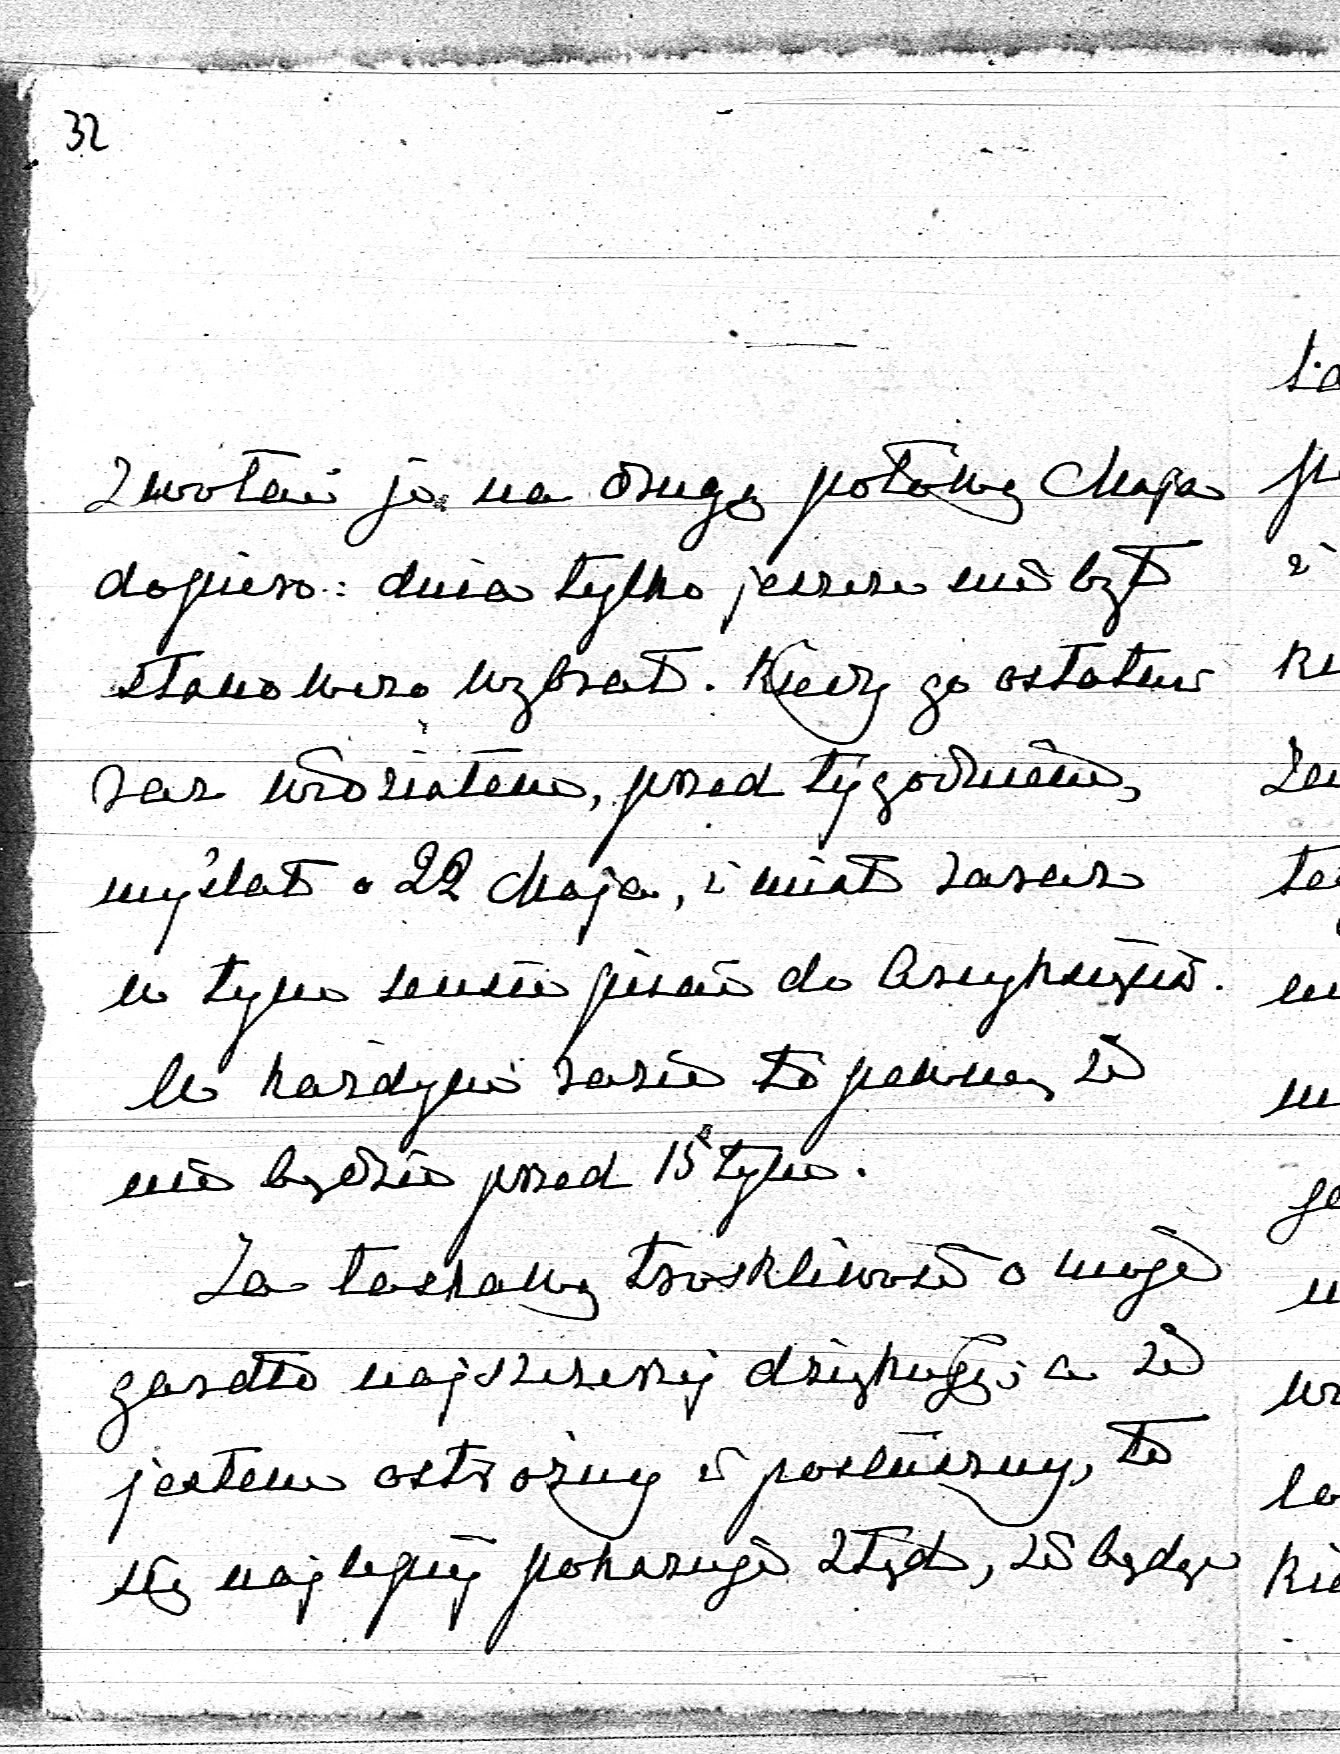 32
zwołać je na drugą połowę Maja
dopiero: dnia tylko jeszcze nie był
stanowczo wybrał. Kiedy go ostatni
raz widziałem, przed tygodniem,
myślał o 22 Maja, i miał zaraz
w tym sensie pisać do Arcyksięcia.
W każdym razie to pewne, że
nie będzie przed 15 tym.
Za łaskawą troskliwość o moje
gardło najszczerzej dziękuję; a że
jestem ostrożny i posłuszny, to
się najlepiej pokazuje ztąd, że będąc